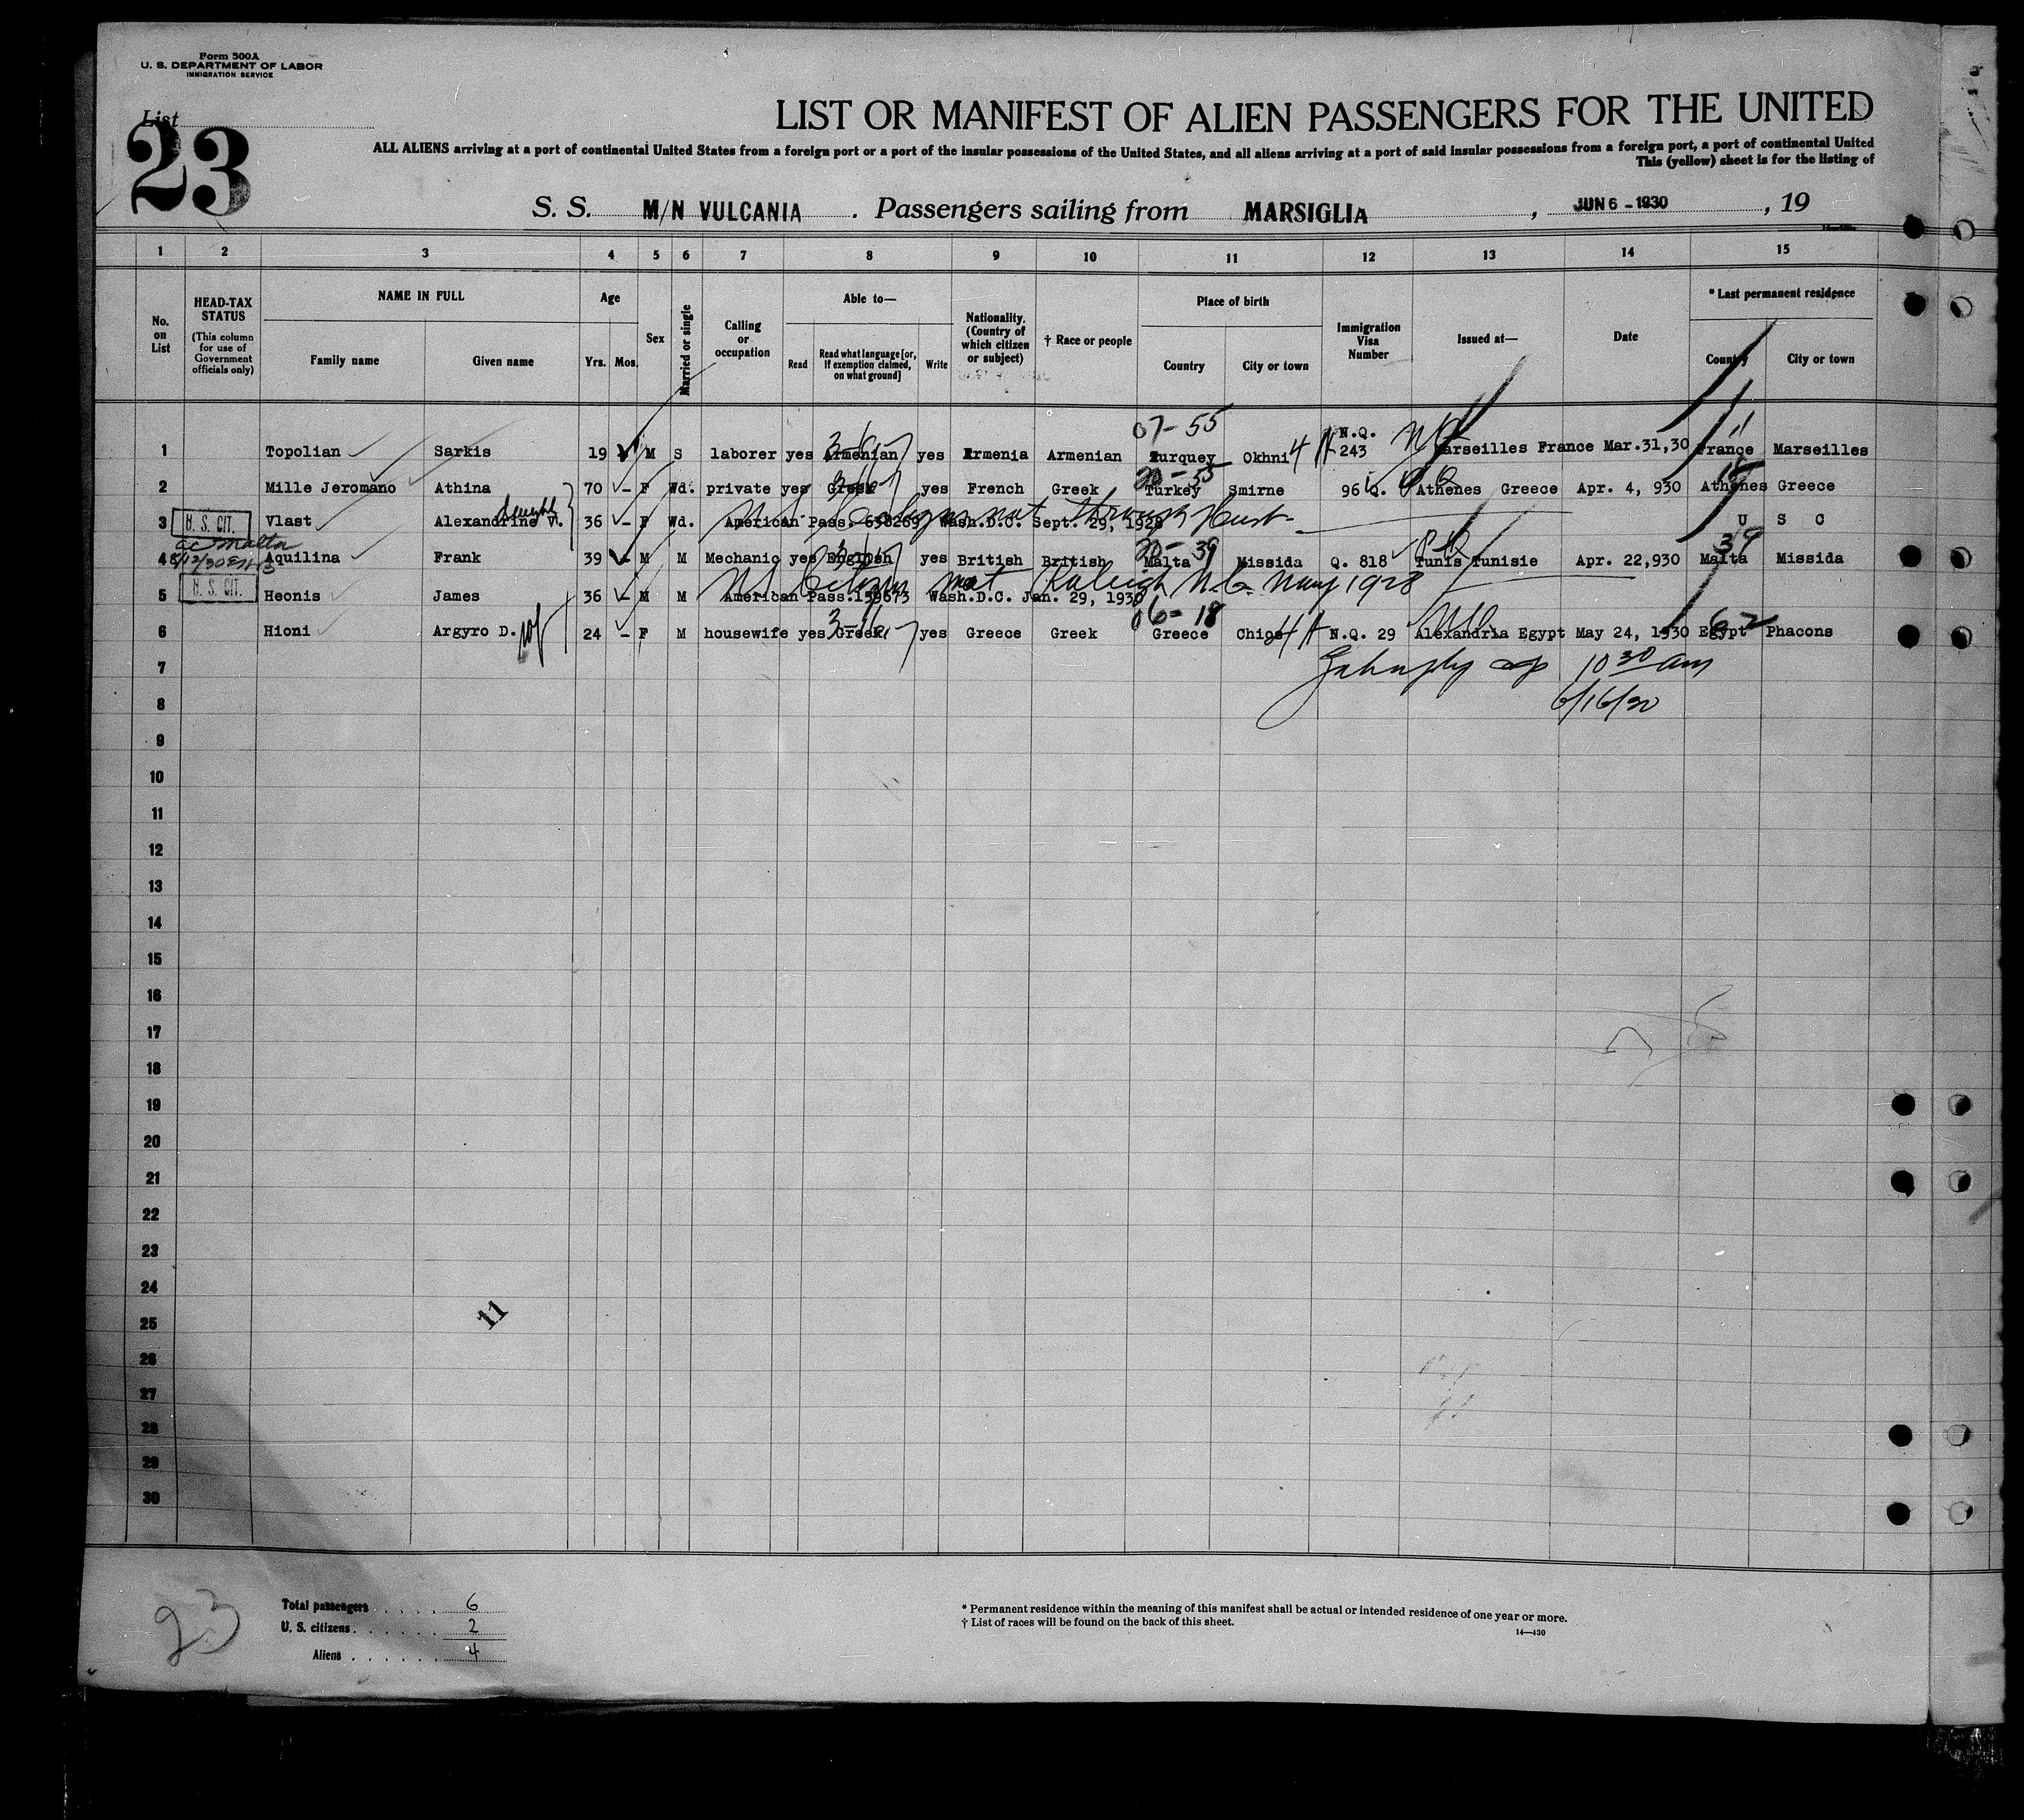 Form 500A
U. S. DEPARTMENT OF LABOR
IMMIGRATION SERVICE
List
23
LIST OR MANIFEST OF ALIEN PASSENGERS FOR THE UNITED
ALL ALIENS arriving at a port of continental United States from a foreign port or a port of the insular possessions of the United States, and all aliens arriving at a port of said insular possessions from a foreign port, a port of continental United
This (yellow) sheet is for the listing of
S. S. M/N VULCANIA. Passengers sailing from MARSIGLIA, JUN 6 - 1930, 19
1 2 3 4 5 6 7 8 9 10 11 12 13 14 15
No. on List
HEAD-TAX STATUS (This column for use of Government officials only)
NAME IN FULL Family name Given name
Age Yrs. Mos.
Sex
Married or single
Calling or occupation
Able to— Read Read what language [or, if exemption claimed, on what ground] Write
Nationality. (Country of which citizen or subject)
† Race or people
Place of birth Country City or town
Immigration Visa Number
Issued at—
Date
* Last permanent residence Country City or town
07-55
1 Topolian Sarkis 19 M S laborer yes Armenian yes Armenia Armenian Turquey Okhni N.Q. 243 Marseilles France Mar.31,30 France Marseilles
20-55
2 Mille Jeromano Athina 70 - F Wd. private yes Greek yes French Greek Turkey Smirne 96 Q. Athenes Greece Apr. 4, 930 Athenes Greece
daught
3 U. S. CIT. Vlast Alexandrine V. 36 - F Wd. American Pass. 638269 Wash.D.C. Sept. 29, 1928 U S C
through Husb
cc Malta
20-39 39
4 Aquilina Frank 39 M M Mechanic yes English yes British British Malta Missida Q. 818 Tunis Tunisie Apr. 22,930 Malta Missida
U.S. Citizen nat Raleigh N.C. May 1928
5 U. S. CIT. Heonis James 36 - M M American Pass.159673 Wash.D.C. Jan. 29, 1930
06-18 62
6 Hioni Argyro D. wf 24 - F M housewife yes Greek yes Greece Greek Greece Chios N.Q. 29 Alexandria Egypt May 24, 1930 Egypt Phacons
7
10 30 am
8
6/16/30
9
10
11
12
13
14
15
16
17
18
19
20
21
22
23
24
11
25
26
27
28
29
30
23
Total passengers . . . . . 6
U. S. citizens . . . . . . 2
Aliens . . . . . . 4
* Permanent residence within the meaning of this manifest shall be actual or intended residence of one year or more.
† List of races will be found on the back of this sheet.
14—430